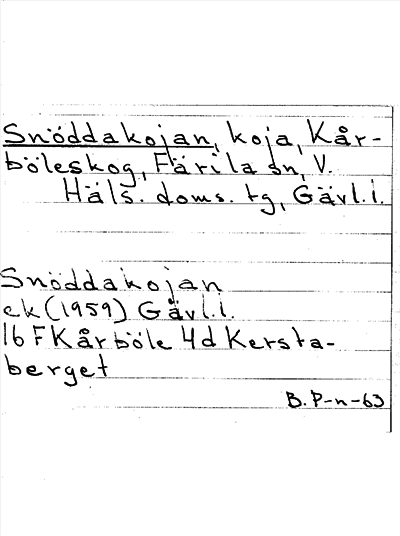 Snöddakojan, koja, Kår-
böleskog, Färila sn, V.
Häls. doms. tg, Gävl.l.
Snöddakojan
ek (1959) Gävl.l.
16 F Kårböle 4d Kersta-
berget
B. P-n-63